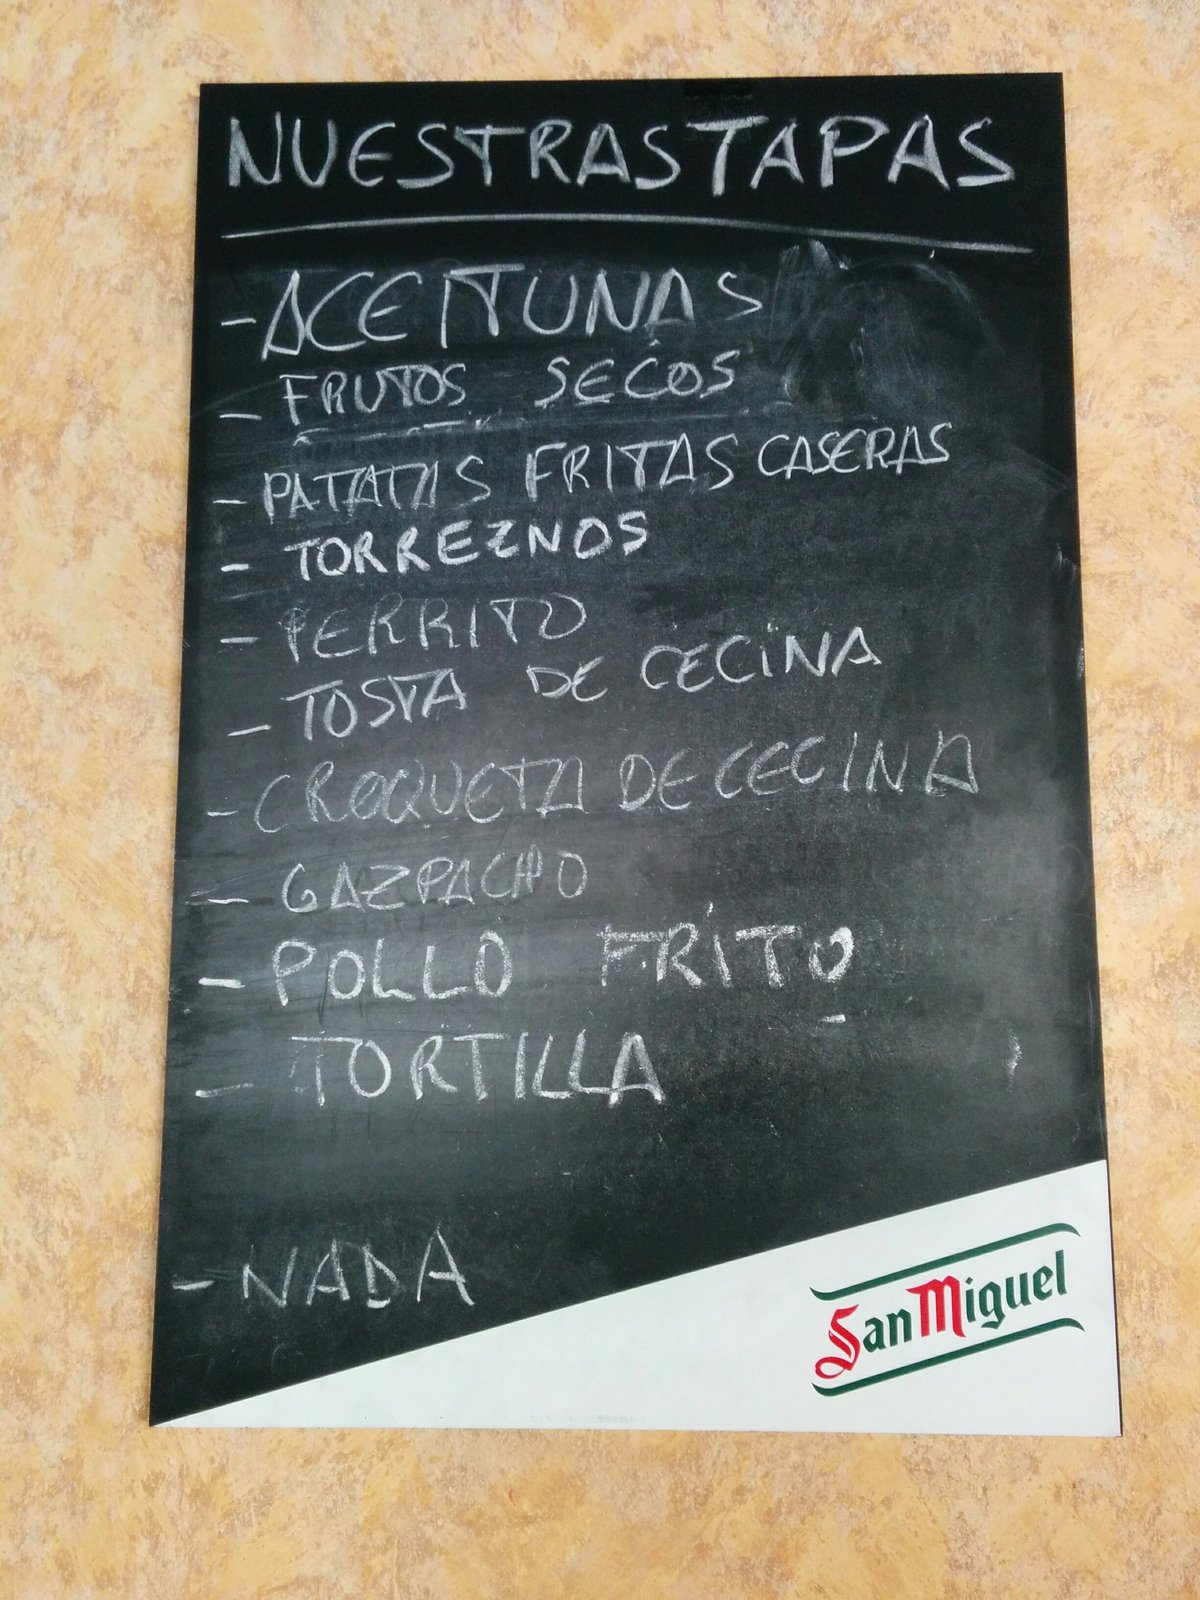 NUESTRAS TAPAS
- ACEITUNAS
- FRUTOS SECOS
- PATATAS FRITAS CASERAS
- TORREZNOS
- PERRITO
- TOSTA DE CECiNA
- CROQUETA DE CECINA
- GAZPACHO
- POLLO FRITO
- TORTILLA
- NADA
San Miguel